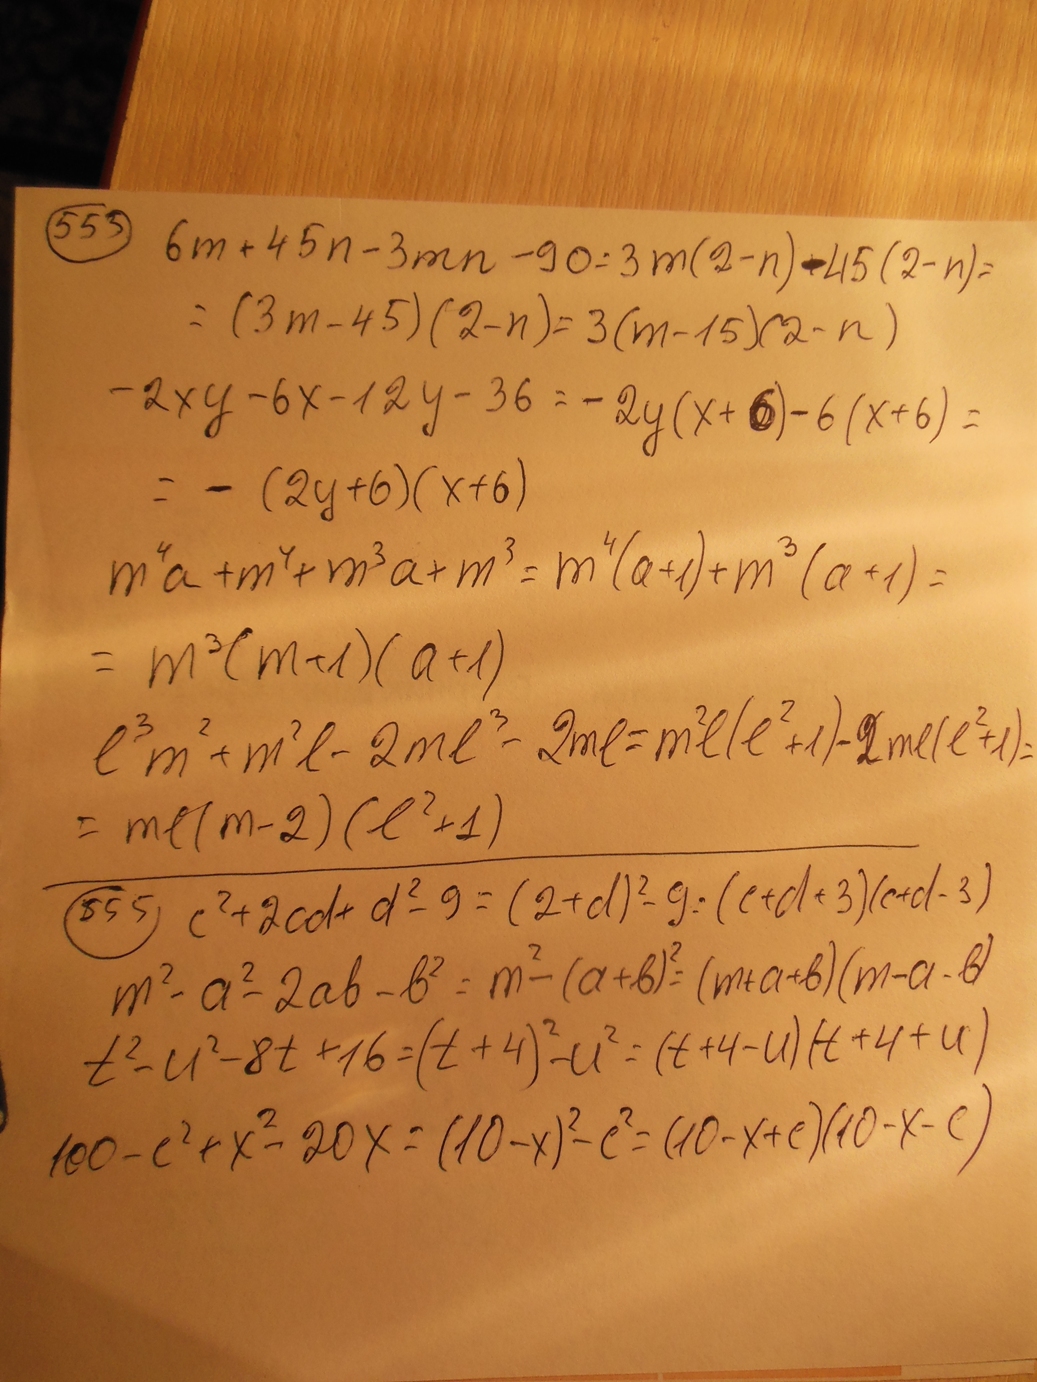 553 6m + 45n - 3mn - 90 = 3m(2-n) - 45(2-n) =
= (3m - 45)(2-n) = 3(m-15)(2-n)
-2xy - 6x - 12y - 36 = -2y(x+6) - 6(x+6) =
= - (2y+6)(x+6)
m⁴a + m⁴ + m³a + m³ = m⁴(a+1) + m³(a+1) =
= m³(m+1)(a+1)
l³m² + m²l - 2ml³ - 2ml = m²l(l²+1) - 2ml(l²+1) =
= ml(m-2)(l²+1)
555 c² + 2cd + d² - 9 = (2+d)² - 9 = (c+d+3)(c+d-3)
m² - a² - 2ab - b² = m² - (a+b)² = (m+a+b)(m-a-b)
t² - u² - 8t + 16 = (t+4)² - u² = (t+4-u)(t+4+u)
100 - c² + x² - 20x = (10-x)² - c² = (10-x+c)(10-x-c)